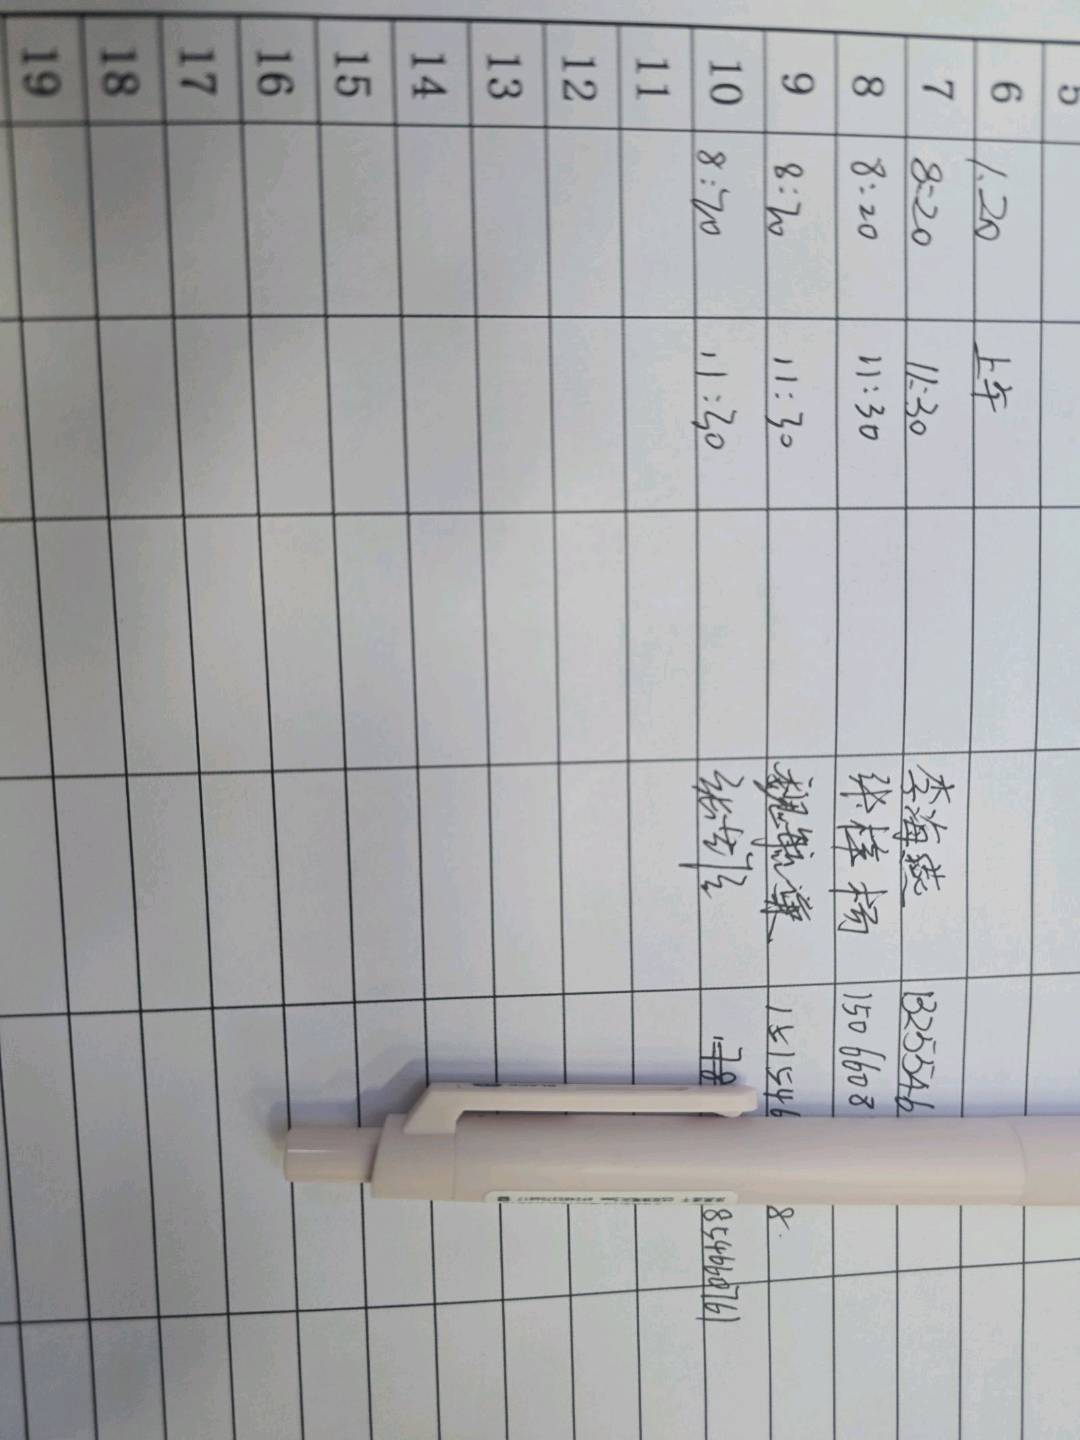 5
6 1.20 上午
7 8:20 11:30 李海燕 1325546
8 8:20 11:30 张栋杨 1506608
9 8:20 11:30 151546 8.
10 8:20 11:30 854660761
11
12
13
14
15
16
17
18
19